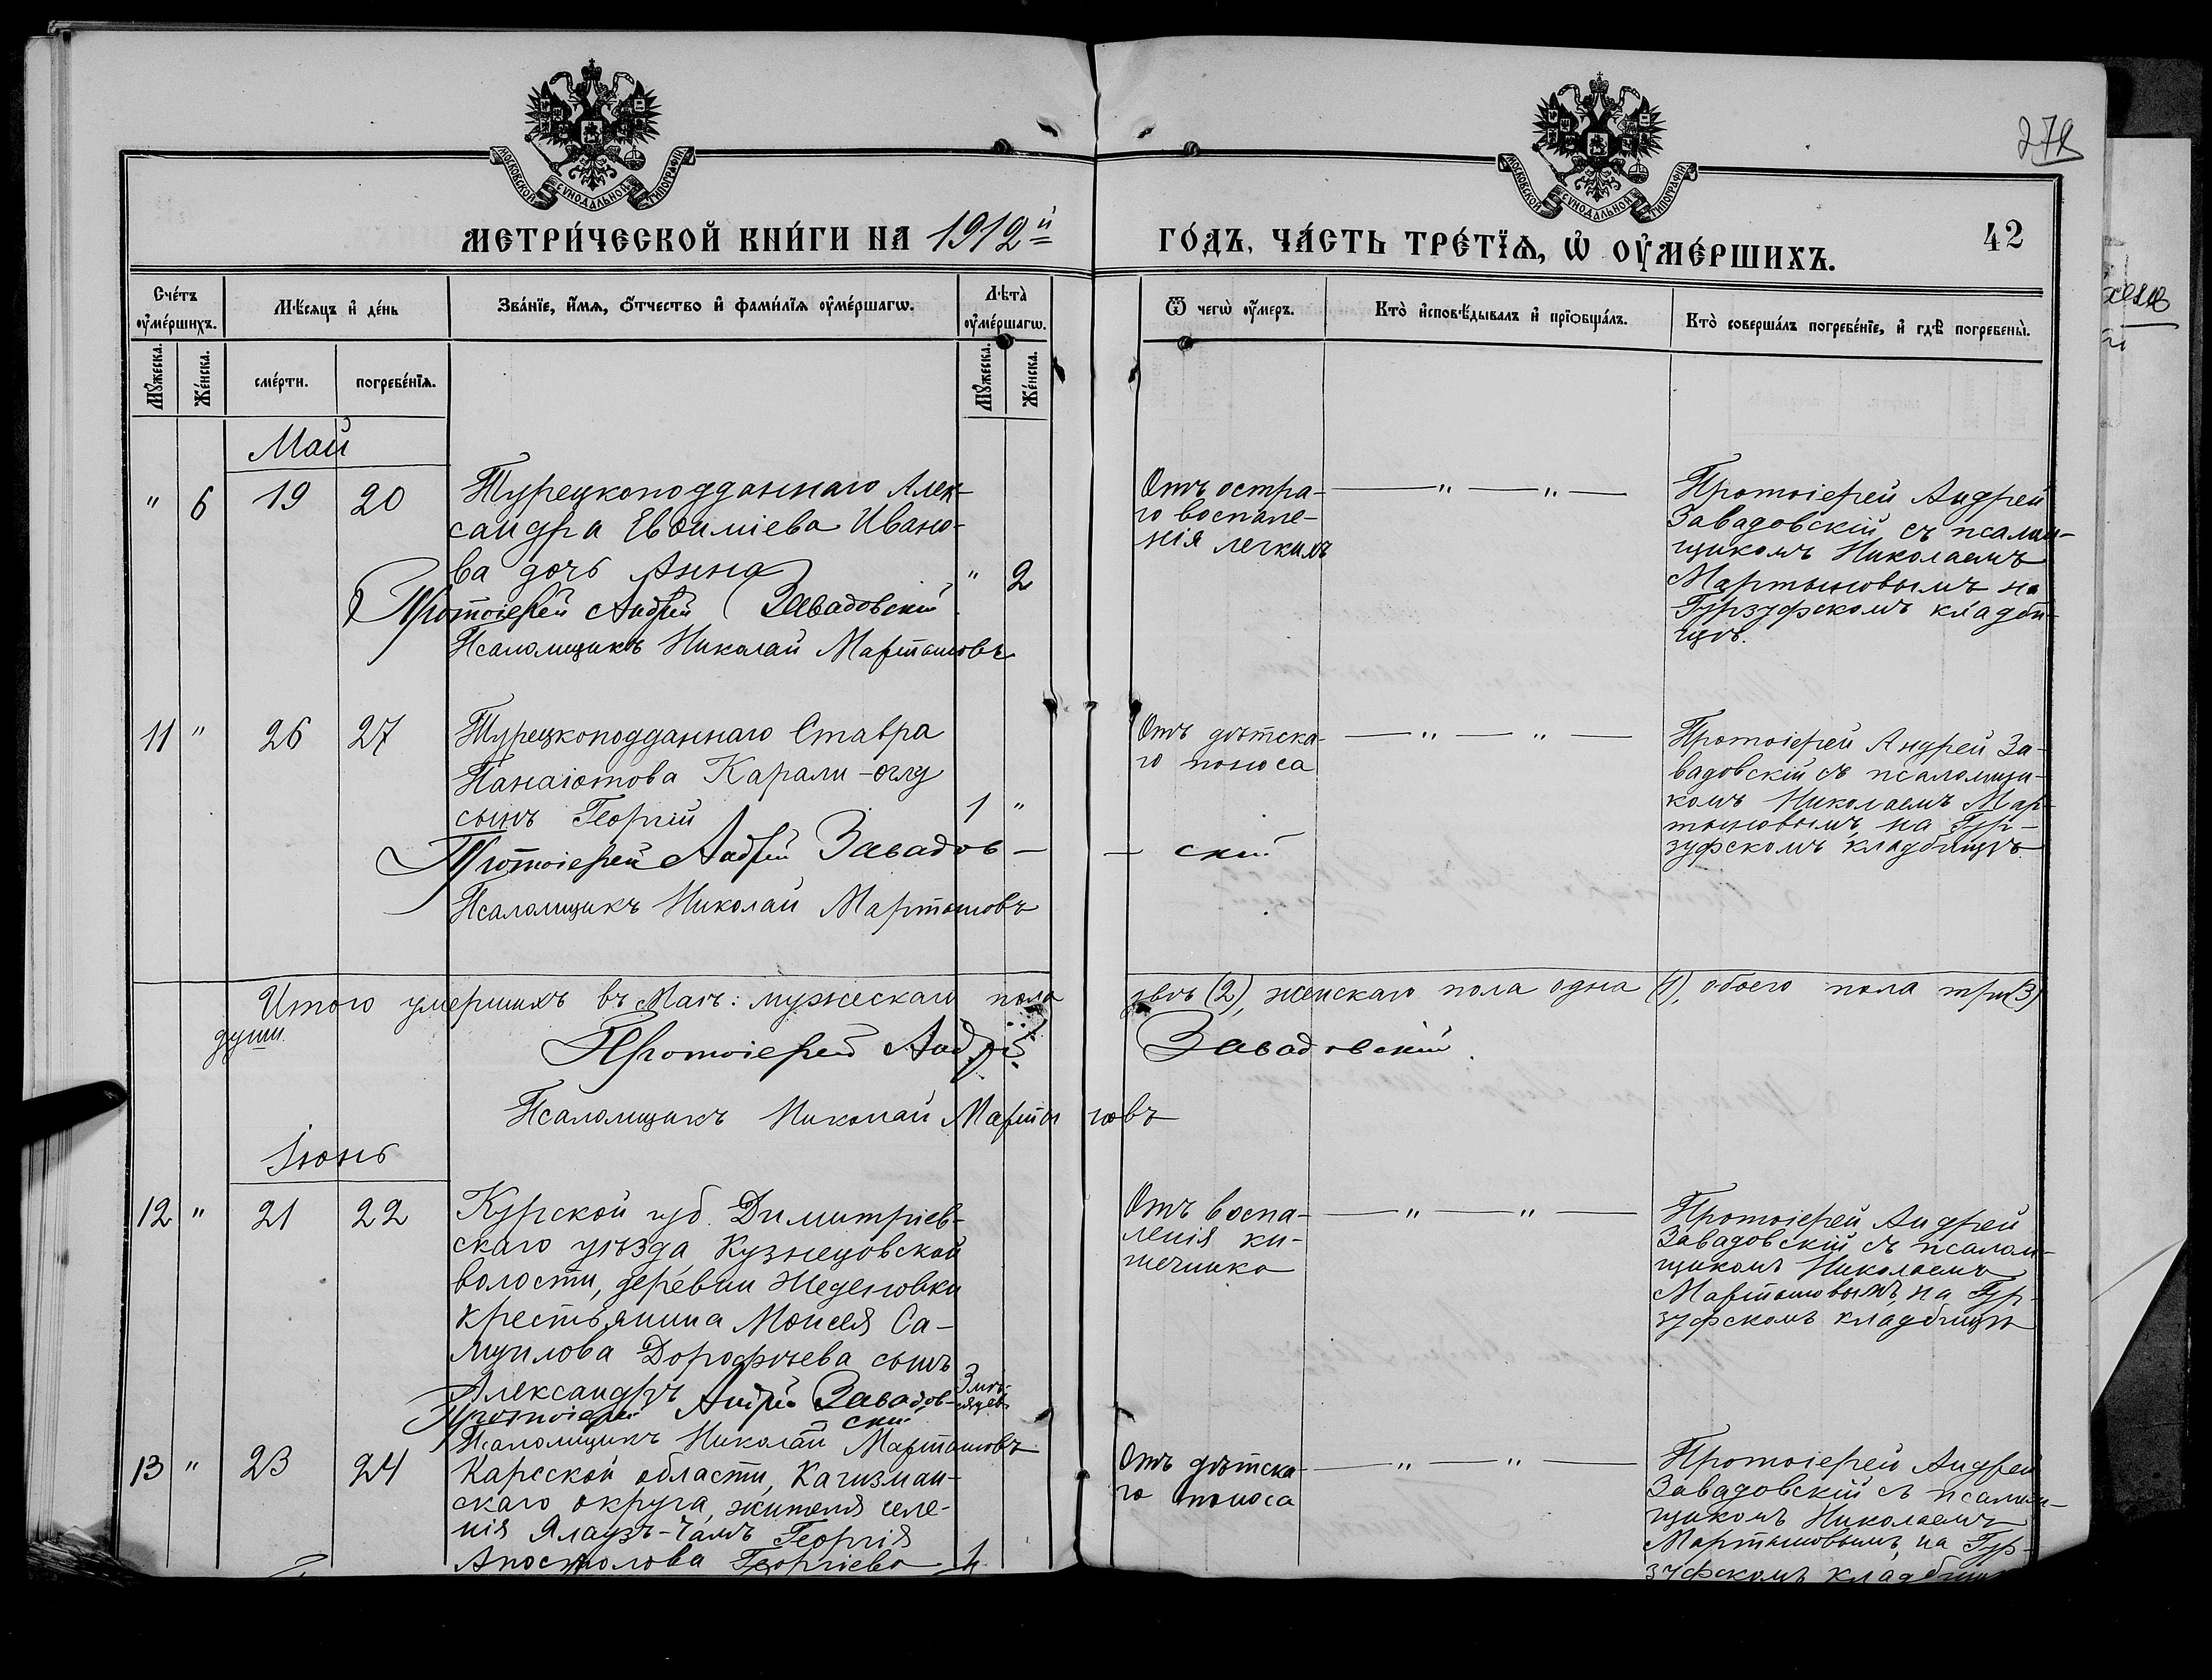 МОСКОВСКОЙ СѴНОДАЛЬНОЙ ТИПОГРАФІИ
МОСКОВСКОЙ СѴНОДАЛЬНОЙ ТИПОГРАФІИ
272
МЕТРИ́ЧЕСКОЙ КНИ́ГИ НА 1912й
ГО́ДЪ, ЧА́СТЬ ТРЕ́ТЇѦ, Ѡ҆ ОУ҆МЕ́РШИХЪ.
42
Сче́тъ оу҆ме́ршихъ.
Мѣ́сѧцъ и҆ де́нь
Зва́нїе, и҆́мѧ, ѻ҆́тчество и҆ фами́лїѧ оу҆ме́ршагѡ.
Лѣта̀ оу҆ме́ршагѡ.
Ѿ чегѡ̀ оу҆́меръ.
Кто̀ и҆сповѣ́дывалъ и҆ прїѡбща́лъ.
Кто̀ соверша́лъ погребе́нїе, и҆ гдѣ̀ погребены̀.
Мꙋ́жеска.
Же́нска.
сме́рти.
погребе́нїѧ.
Мꙋ́жеска.
Же́нска.
Май
" 6 19 20
Турецкоподданнаго Алек-
сандра Евѳиміева Ивано-
ва дочь Анна
" 2
Протоіерей Андрей Завадовскій
Псаломщикъ Николай Мартыновъ
Отъ остра-
го воспале-
нія легкихъ
— " — " —
Протоіерей Андрей
Завадовскій съ псалом-
щикомъ Николаемъ
Мартыновымъ на
Гурзуфскомъ кладби-
щѣ.
11 " 26 27
Турецкоподданнаго Ставра
Панаіотова Карали-оглу
сынъ Георгій
1 "
Протоіерей Андрей Завадов-
- скій
Псаломщикъ Николай Мартыновъ
Отъ дѣтска-
го поноса
— " — " —
Протоіерей Андрей За-
вадовскій съ псаломщи-
комъ Николаемъ Мар-
тыновымъ, на Гур-
зуфскомъ кладбищѣ.
Итого умершихъ въ Маѣ: мужескаго пола двѣ (2), женскаго пола одна (1), обоего пола три (3)
души.
Протоіерей Андрей Завадовскій.
Псаломщикъ Николай Мартыновъ
Іюнь
12 " 21 22
Курской губ. Димитріев-
скаго уѣзда, Кузнецовской
волости, деревни Жеденовки
крестьянина Моисея Са-
муилова Дорофѣева сынъ
Александръ
3 мѣ-
сяцевъ
Протоіерей Андрей Завадов-
скій
Псаломщикъ Николай Мартыновъ
Отъ воспа-
ленія ки-
шечника
— " — " —
Протоіерей Андрей
Завадовскій съ псалом-
щикомъ Николаемъ
Мартыновымъ, на Гур-
зуфскомъ кладбищѣ
13 " 23 24
Карсской области, Кагизман-
скаго округа, жителя селе-
нія Ялаузъ-Чамъ Георгія
Апостолова Георгіева
1
Отъ дѣтска-
го поноса
— " — " —
Протоіерей Андрей
Завадовскій съ псалом-
щикомъ Николаемъ
Мартыновымъ, на Гур-
зуфскомъ кладбищѣ